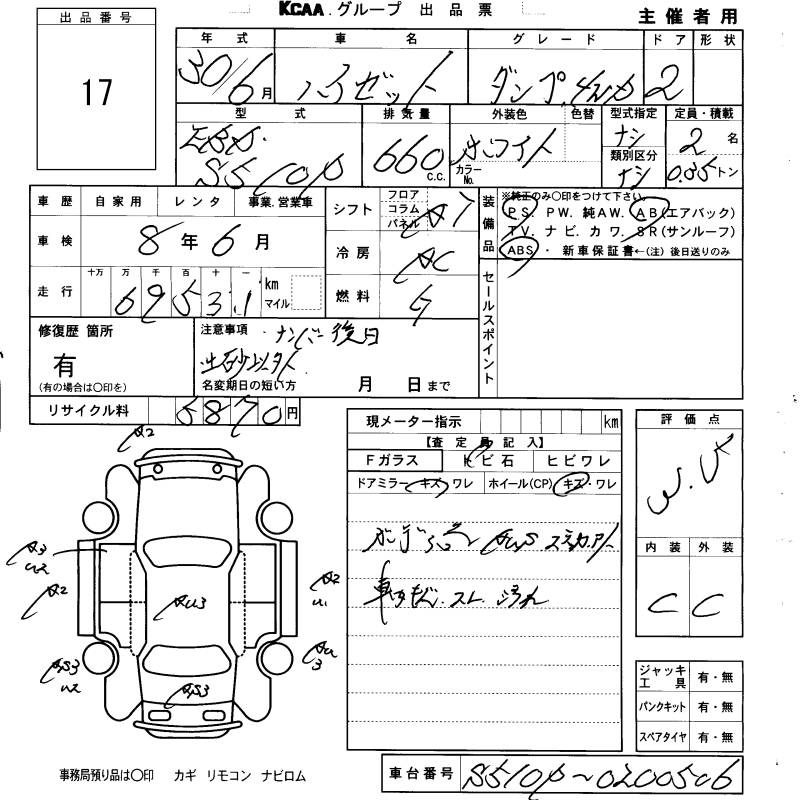 KCAA.グループ 出品票
主催者用
出品番号
17
年式 車名 グレード ドア 形状
30/6月 ハイゼット ダンプ 4WD 2
型式 排気量 外装色 色替 型式指定 定員・積載
EBD- S510P 660 C.C. ホワイト カラーNo. ナシ 類別区分 ナシ 2名 0.35トン
車歴 自家用 レンタ 事業.営業車
車検 8年6月
走行 十万 万 千 百 十 一
69531 km マイル
シフト フロア コラム パネル A7
冷房 AC
燃料 G
装備品 ※純正のみ〇印をつけて下さい。
PS. PW. 純AW. AB(エアバック)
TV. ナビ. カワ. SR(サンルーフ)
ABS・ 新車保証書←(注)後日送りのみ
セールスポイント
修復歴 箇所
有
(有の場合は〇印を)
注意事項 ・ナンバー後日
土砂以外
名変期日の短い方 月 日まで
リサイクル料 5870円
現メーター指示 km
【査定員記入】
Fガラス トビ石 ヒビワレ
ドアミラー キズ・ワレ ホイール(CP) キズ・ワレ
スレ 汚れ
評価点
内装 外装
C C
ジャッキ工具 有・無
パンクキット 有・無
スペアタイヤ 有・無
A2
A3
U2
A2
AU3
A2
U1
AU
3
AS3
U2
AS3
事務局預り品は〇印 カギ リモコン ナビロム
車台番号 S510P~0200506